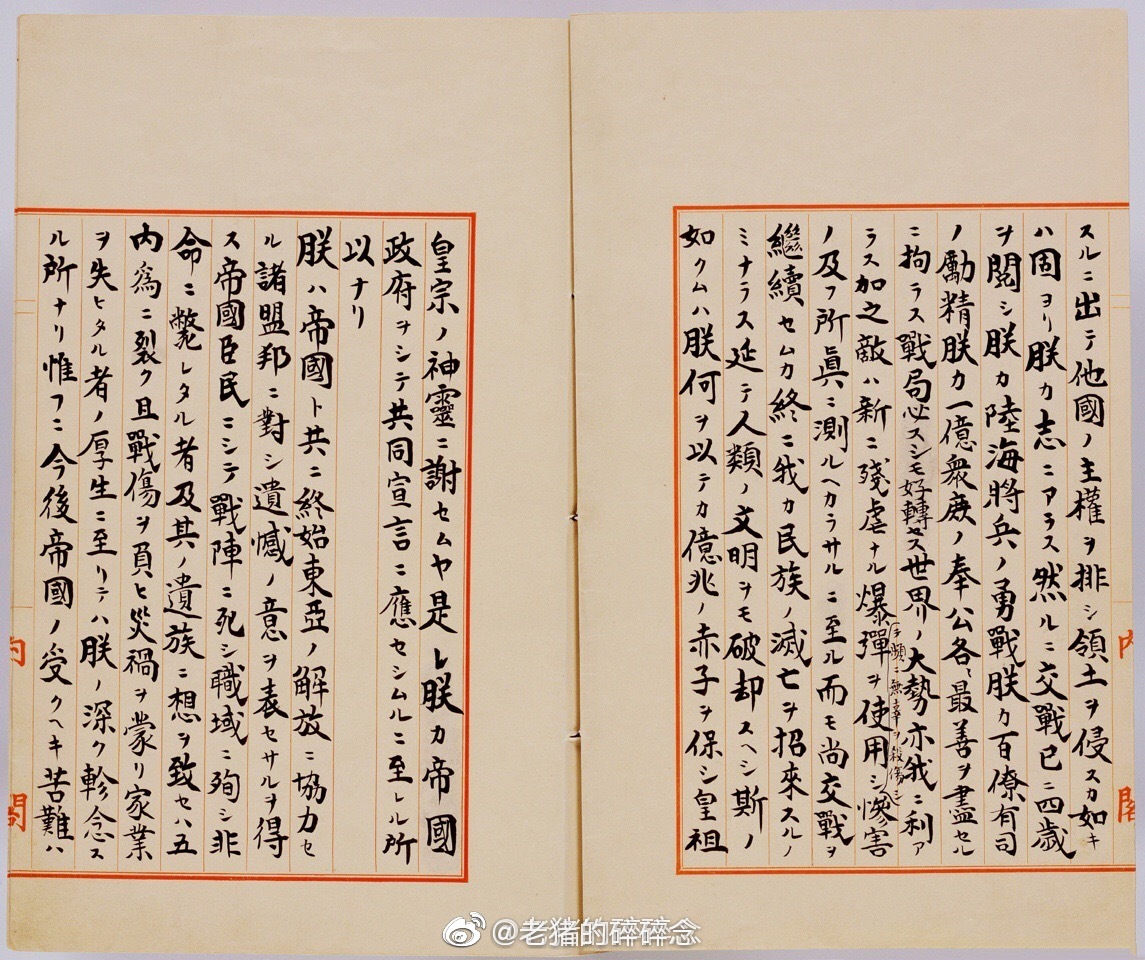 スルニ出テ他國ノ主權ヲ排シ領土ヲ侵スカ如キ
ハ固ヨリ朕カ志ニアラス然ルニ交戰已ニ四歲
ヲ閲シ朕カ陸海將兵ノ勇戰朕カ百僚有司
ノ勵精朕カ一億衆庶ノ奉公各〻最善ヲ盡セル
ニ拘ラス戰局必スシモ好轉セス世界ノ大勢亦我ニ利ア
テ頻ニ無辜ヲ殺傷シ
ラス加之敵ハ新ニ殘虐ナル爆彈ヲ使用シ慘害
ノ及フ所眞ニ測ルヘカラサルニ至ル而モ尚交戰ヲ
繼續セムカ終ニ我カ民族ノ滅亡ヲ招來スルノ
ミナラス延テ人類ノ文明ヲモ破却スヘシ斯ノ
如クムハ朕何ヲ以テカ億兆ノ赤子ヲ保シ皇祖
內閣
皇宗ノ神靈ニ謝セムヤ是レ朕カ帝國
政府ヲシテ共同宣言ニ應セシムルニ至レル所
以ナリ
朕ハ帝國ト共ニ終始東亞ノ解放ニ協力セ
ル諸盟邦ニ對シ遺憾ノ意ヲ表セサルヲ得
ス帝國臣民ニシテ戰陣ニ死シ職域ニ殉シ非
命ニ斃レタル者及其ノ遺族ニ想ヲ致セハ五
內爲ニ裂ク且戰傷ヲ負ヒ災禍ヲ蒙リ家業
ヲ失ヒタル者ノ厚生ニ至リテハ朕ノ深ク軫念ス
ル所ナリ惟フニ今後帝國ノ受クヘキ苦難ハ
內閣
@老猪的碎碎念